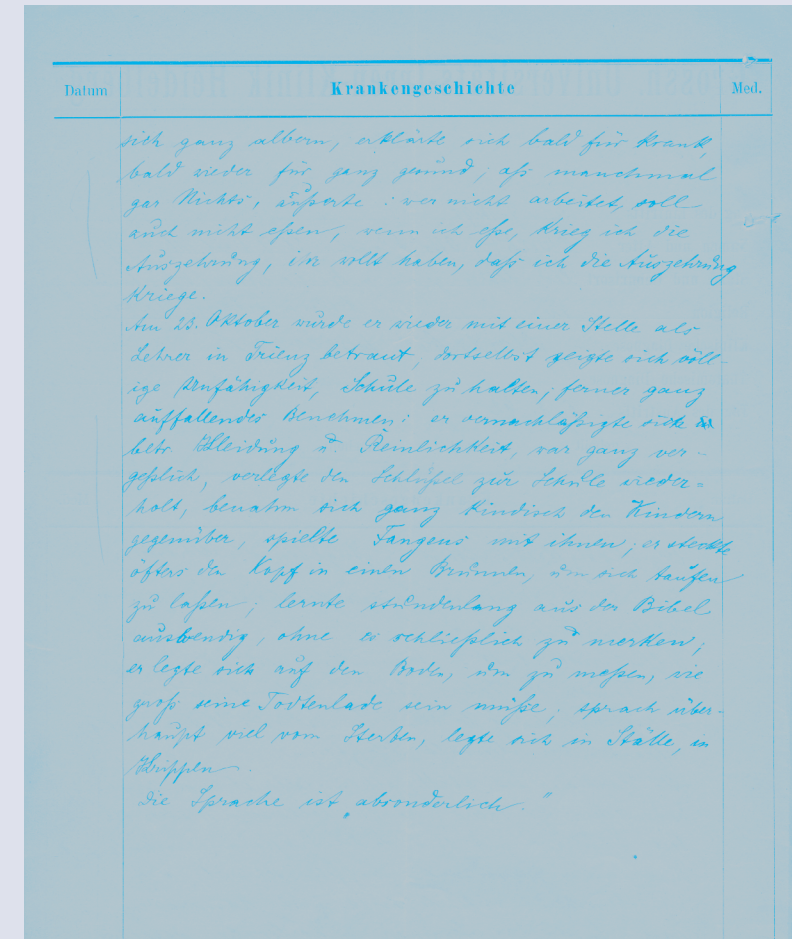 Datum Krankengeschichte Med.
sich ganz albern, erklärte sich bald für krank,
bald wieder für ganz gesund; aß manchmal
gar Nichts, äußerte: wer nicht arbeitet, soll
auch nicht eßen, wenn ich eße, krieg ich die
Auszehrung, ihr wollt haben, daß ich die Auszehrung
kriege.
Am 23. Oktober wurde er wieder mit einer Stelle als
Lehrer in Trienz betraut, dortselbst zeigte sich völl-
ige Unfähigkeit, Schule zu halten; ferner ganz
auffallendes Benehmen: er vernachläßigte sich
betr. Kleidung u. Reinlichkeit, war ganz ver-
geßlich, verlegte den Schlüßel zur Schule wieder=
holt, benahm sich ganz kindisch den Kindern
gegenüber, spielte Fangens mit ihnen; er steckte
öfters den Kopf in einen Brunnen, um sich taufen
zu laßen; lernte stundenlang aus der Bibel
auswendig, ohne es schließlich zu merken;
er legte sich auf den Boden, um zu meßen, wie
groß seine Todtenlade sein müße; sprach über-
haupt viel vom Sterben, legte sich in Ställe, in
Krippen.
Die Sprache ist „absonderlich."